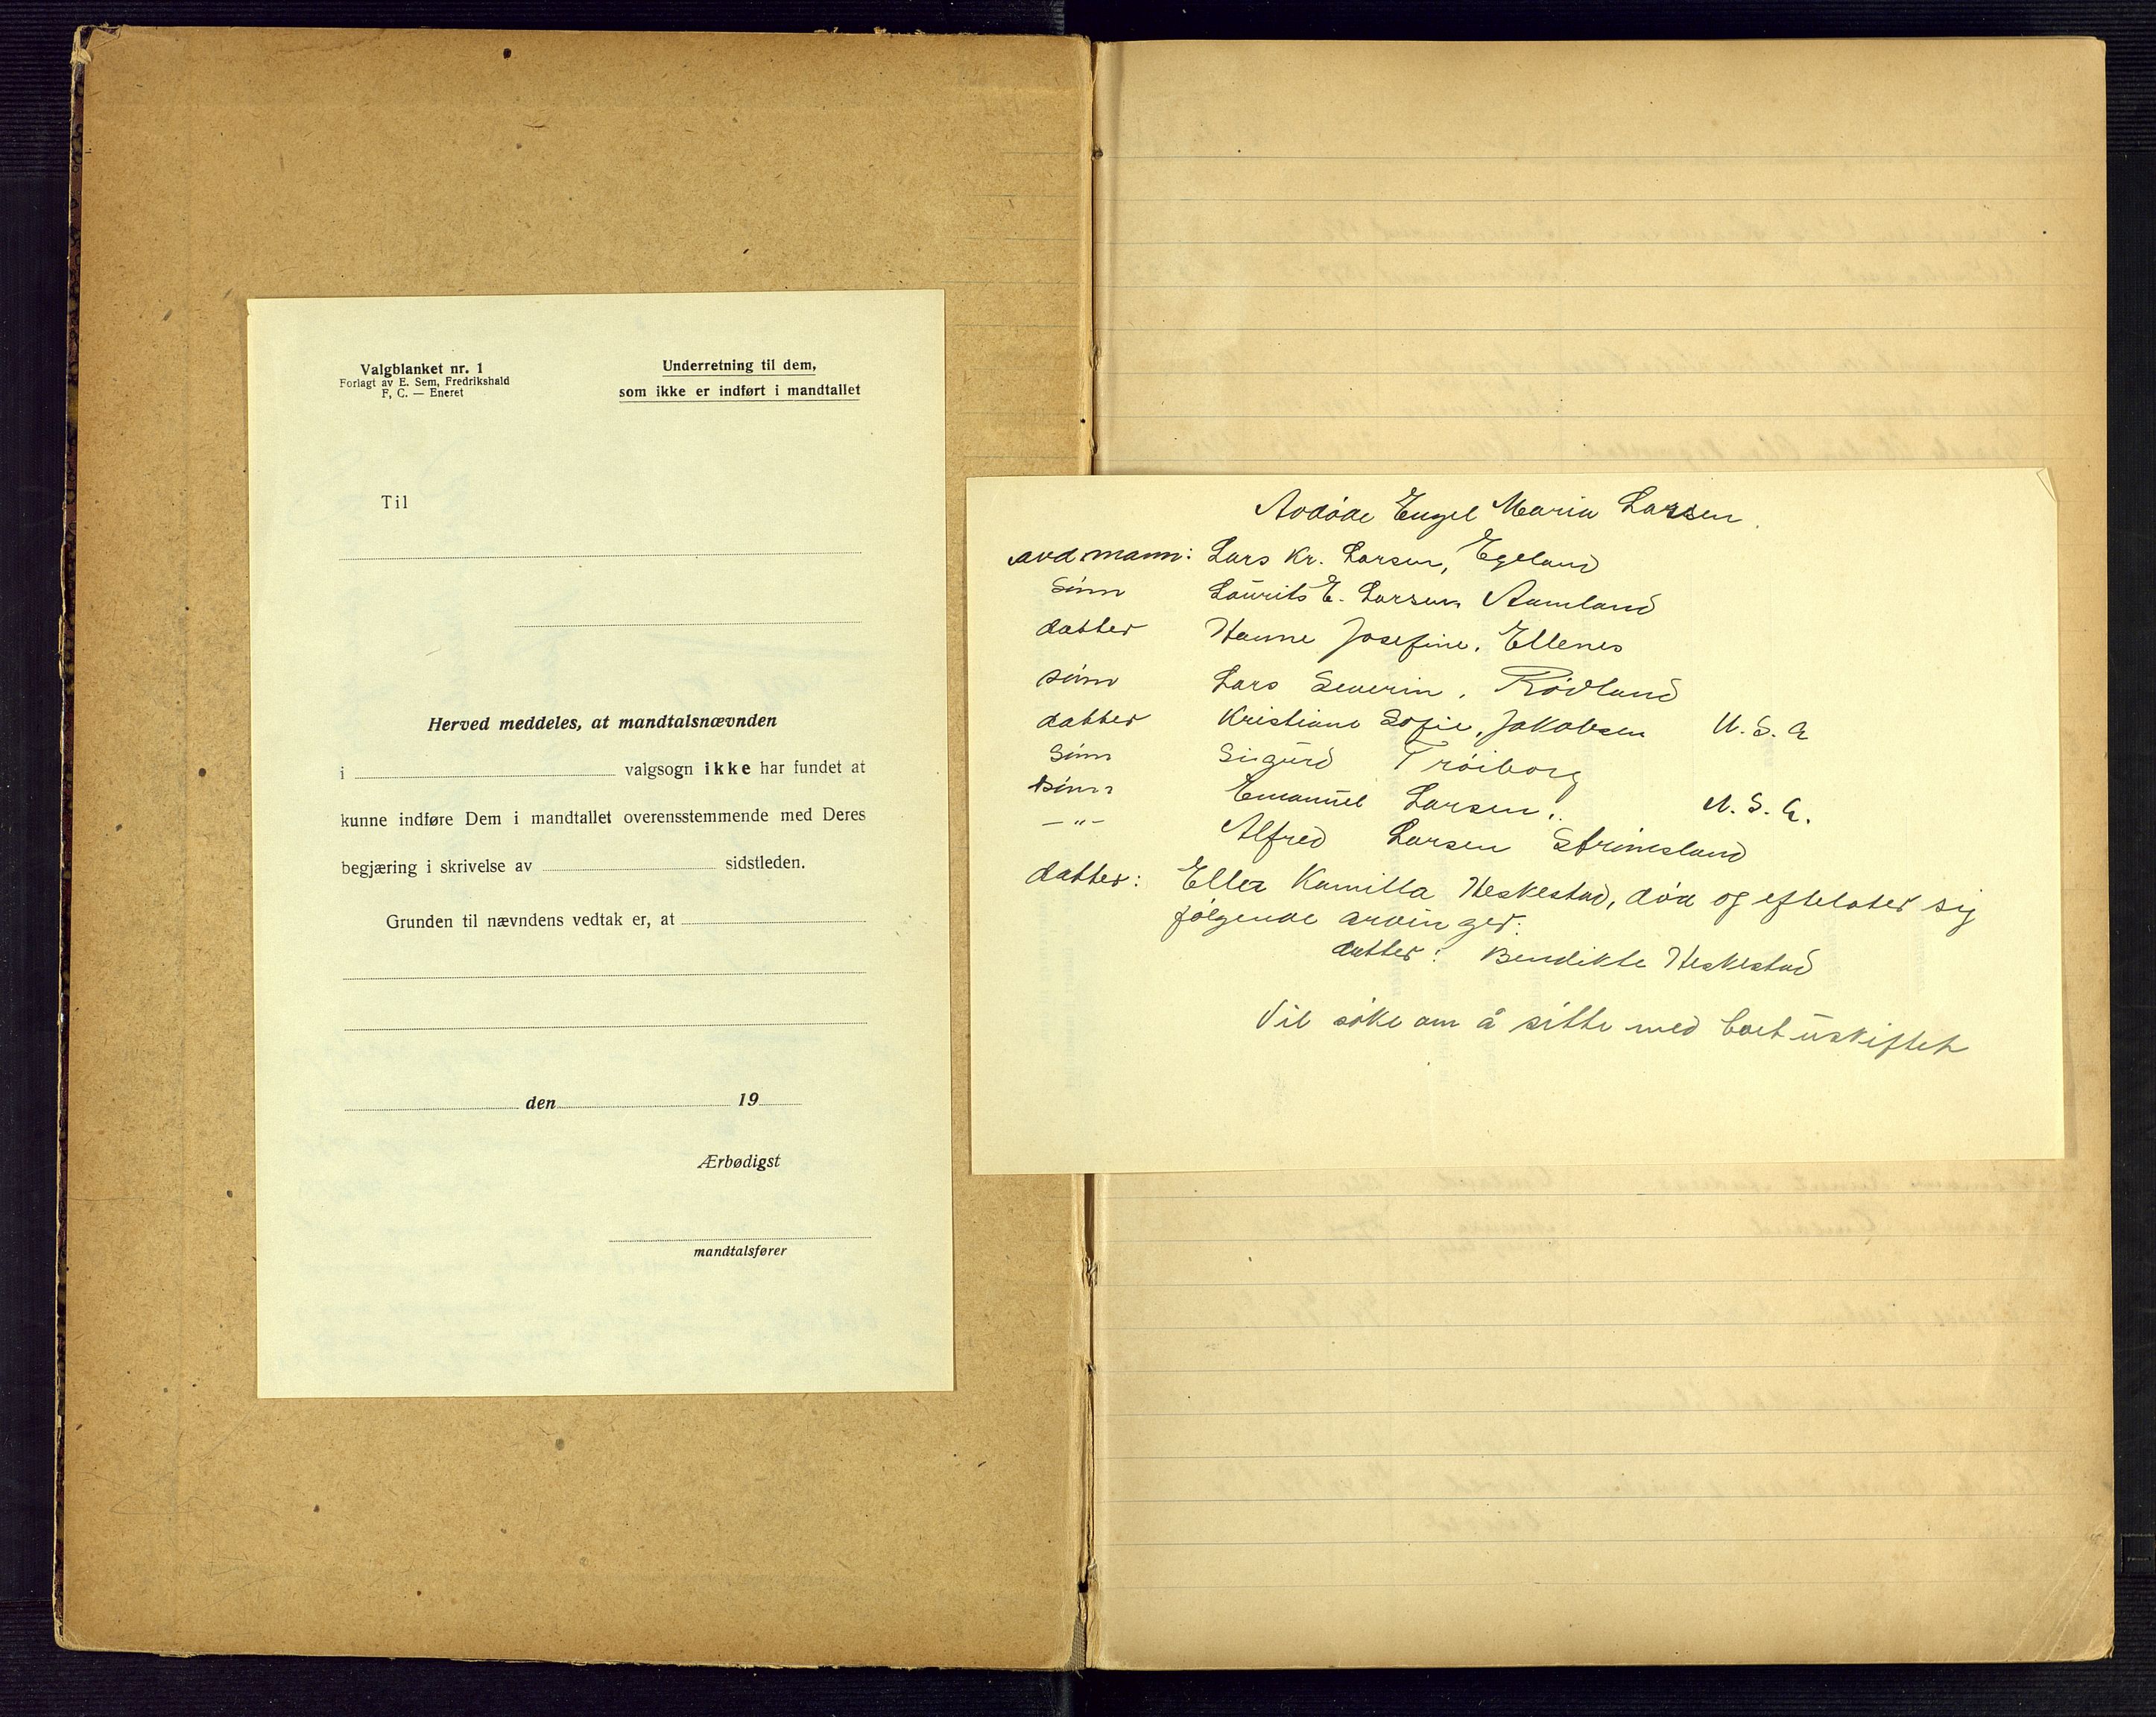 Valgblanket nr. 1
Forlagt av E. Sem, Fredrikshald
F, C. — Eneret
Underretning til dem,
som ikke er indført i mandtallet
Til
Herved meddeles, at mandtalsnævnden
i valgsogn ikke har fundet at
kunne indføre Dem i mandtallet overensstemmende med Deres
begjæring i skrivelse av sidstleden.
Grunden til nævndens vedtak er, at
den 19
Ærbødigst
mandtalsfører
Avdøde Engel Maria Larsen.
avd. mann: Lars Kr. Larsen, Egeland
Sønn Laurits E. Larsen Aamland
datter Hanne Josefine, Ellenes
sønn Lars Severin, Rødland
datter Kristiane Sofie, Jakobsen U. S. A
Sønn Sigurd Trøiborg
sønn Emanuel Larsen, U. S. A.
— " — Alfred Larsen Strømsland
datter: Ellea Kamilla Heskestad, død og eftelater sig
følgende arvinger:
datter: Bendikte Heskestad
Vil søke om å sitte med boet uskiftet